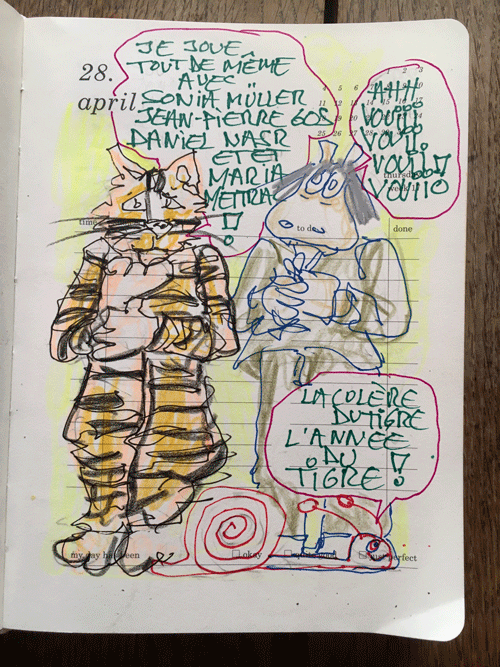 28.
april
JE JOUE
TOUT DE MÊME
AVEC
SONIA MÜLLER
JEAN-PIERRE GOS
DANIEL NASR
ET ET
MARIA
METTRAL
!
AHH
VOUI
VOUI
VOUI!
thursday
week 17
time
to do
done
LA COLÈRE
DU TIGRE
L'ANNÉE
DU
TIGRE!
my day has been
okay
just perfect